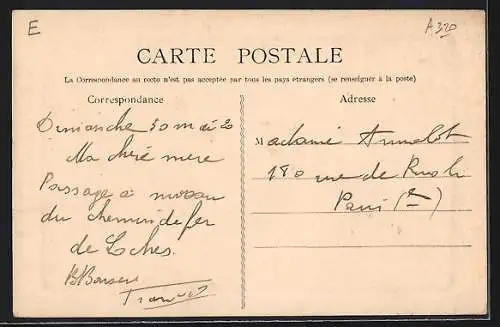 E
A320
CARTE POSTALE
La Correspondance au recto n'est pas acceptée par tous les pays étrangers (se renseigner à la poste)
Correspondance
Adresse
Dimanche 30 mai 20
Ma chère mère
Passage à niveau
du chemin de fer
de Loches.
Madame
180 rue de Rivoli
Paris